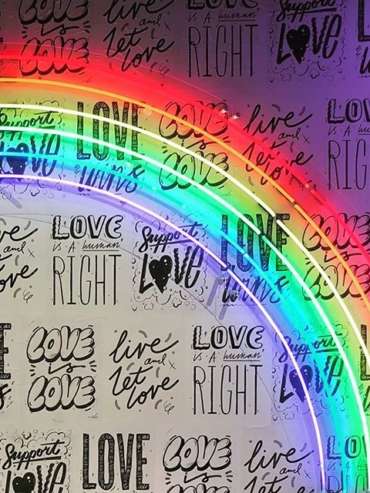 LOVE
IS
LOVE
live
and
let
love
LOVE
IS A human
RIGHT
Support
Love
Support
Love
LOVE
wins
LOVE
IS
LOVE
live
and
let
love
LOVE
IS A human
RIG
LOVE
IS A human
RIGHT
Support
Love
LOVE
wins
LOVE
IS
LOVE
LOVE
IS
LOVE
live
and
let
love
LOVE
IS A human
RIGHT
Support
Love
Support
Love
LOVE
LOVE
IS
live
and